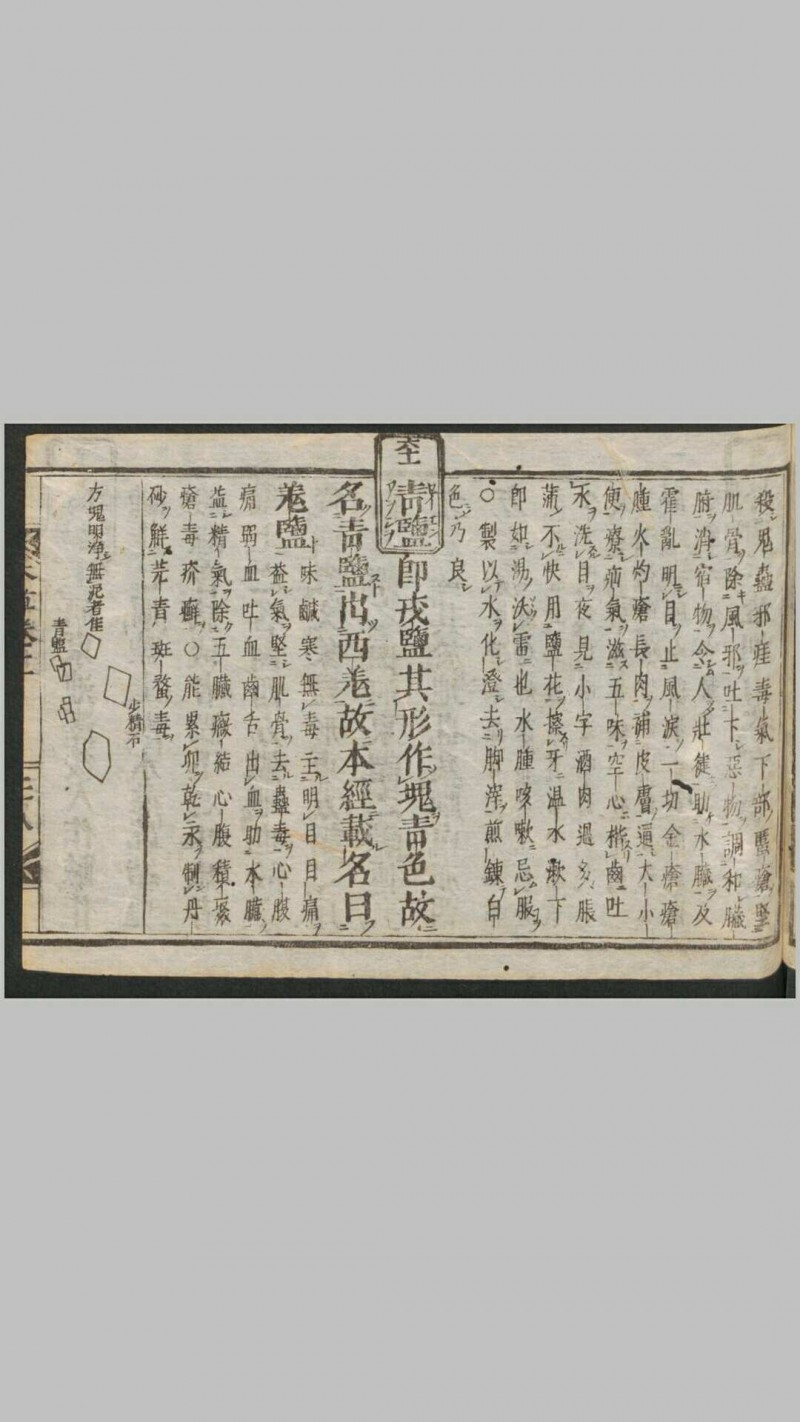 殺鬼蠱邪疰毒氣下部䘌瘡堅
肌骨除風邪吐下惡物調和臟
腑消宿物令人壯徤助水臟及
霍亂明目止風淚一切金瘡瘡
腫火灼瘡長肉補皮膚通大小
便療疝氣滋五味空心楷齒吐
水洗目夜見小字酒肉過多脹
滿不快用鹽花擦牙温水漱下
即如湯沃雷也水腫咳嗽忌服
○製以水化澄去脚滓煎鍊白
色乃良
青鹽即戎鹽其形作塊青色故
名青鹽出西羌故本經載名曰
羌鹽
味鹹寒無毒主明目目痛
益氣堅肌骨去蠱毒心腹
痛弱血吐血齒舌出血助水臟
益精氣除五臟癥結心腹積聚
瘡毒疥癬○能累卯乾汞制丹
砂解芫青斑蝥毒
方塊明淨無泥者佳
青鹽